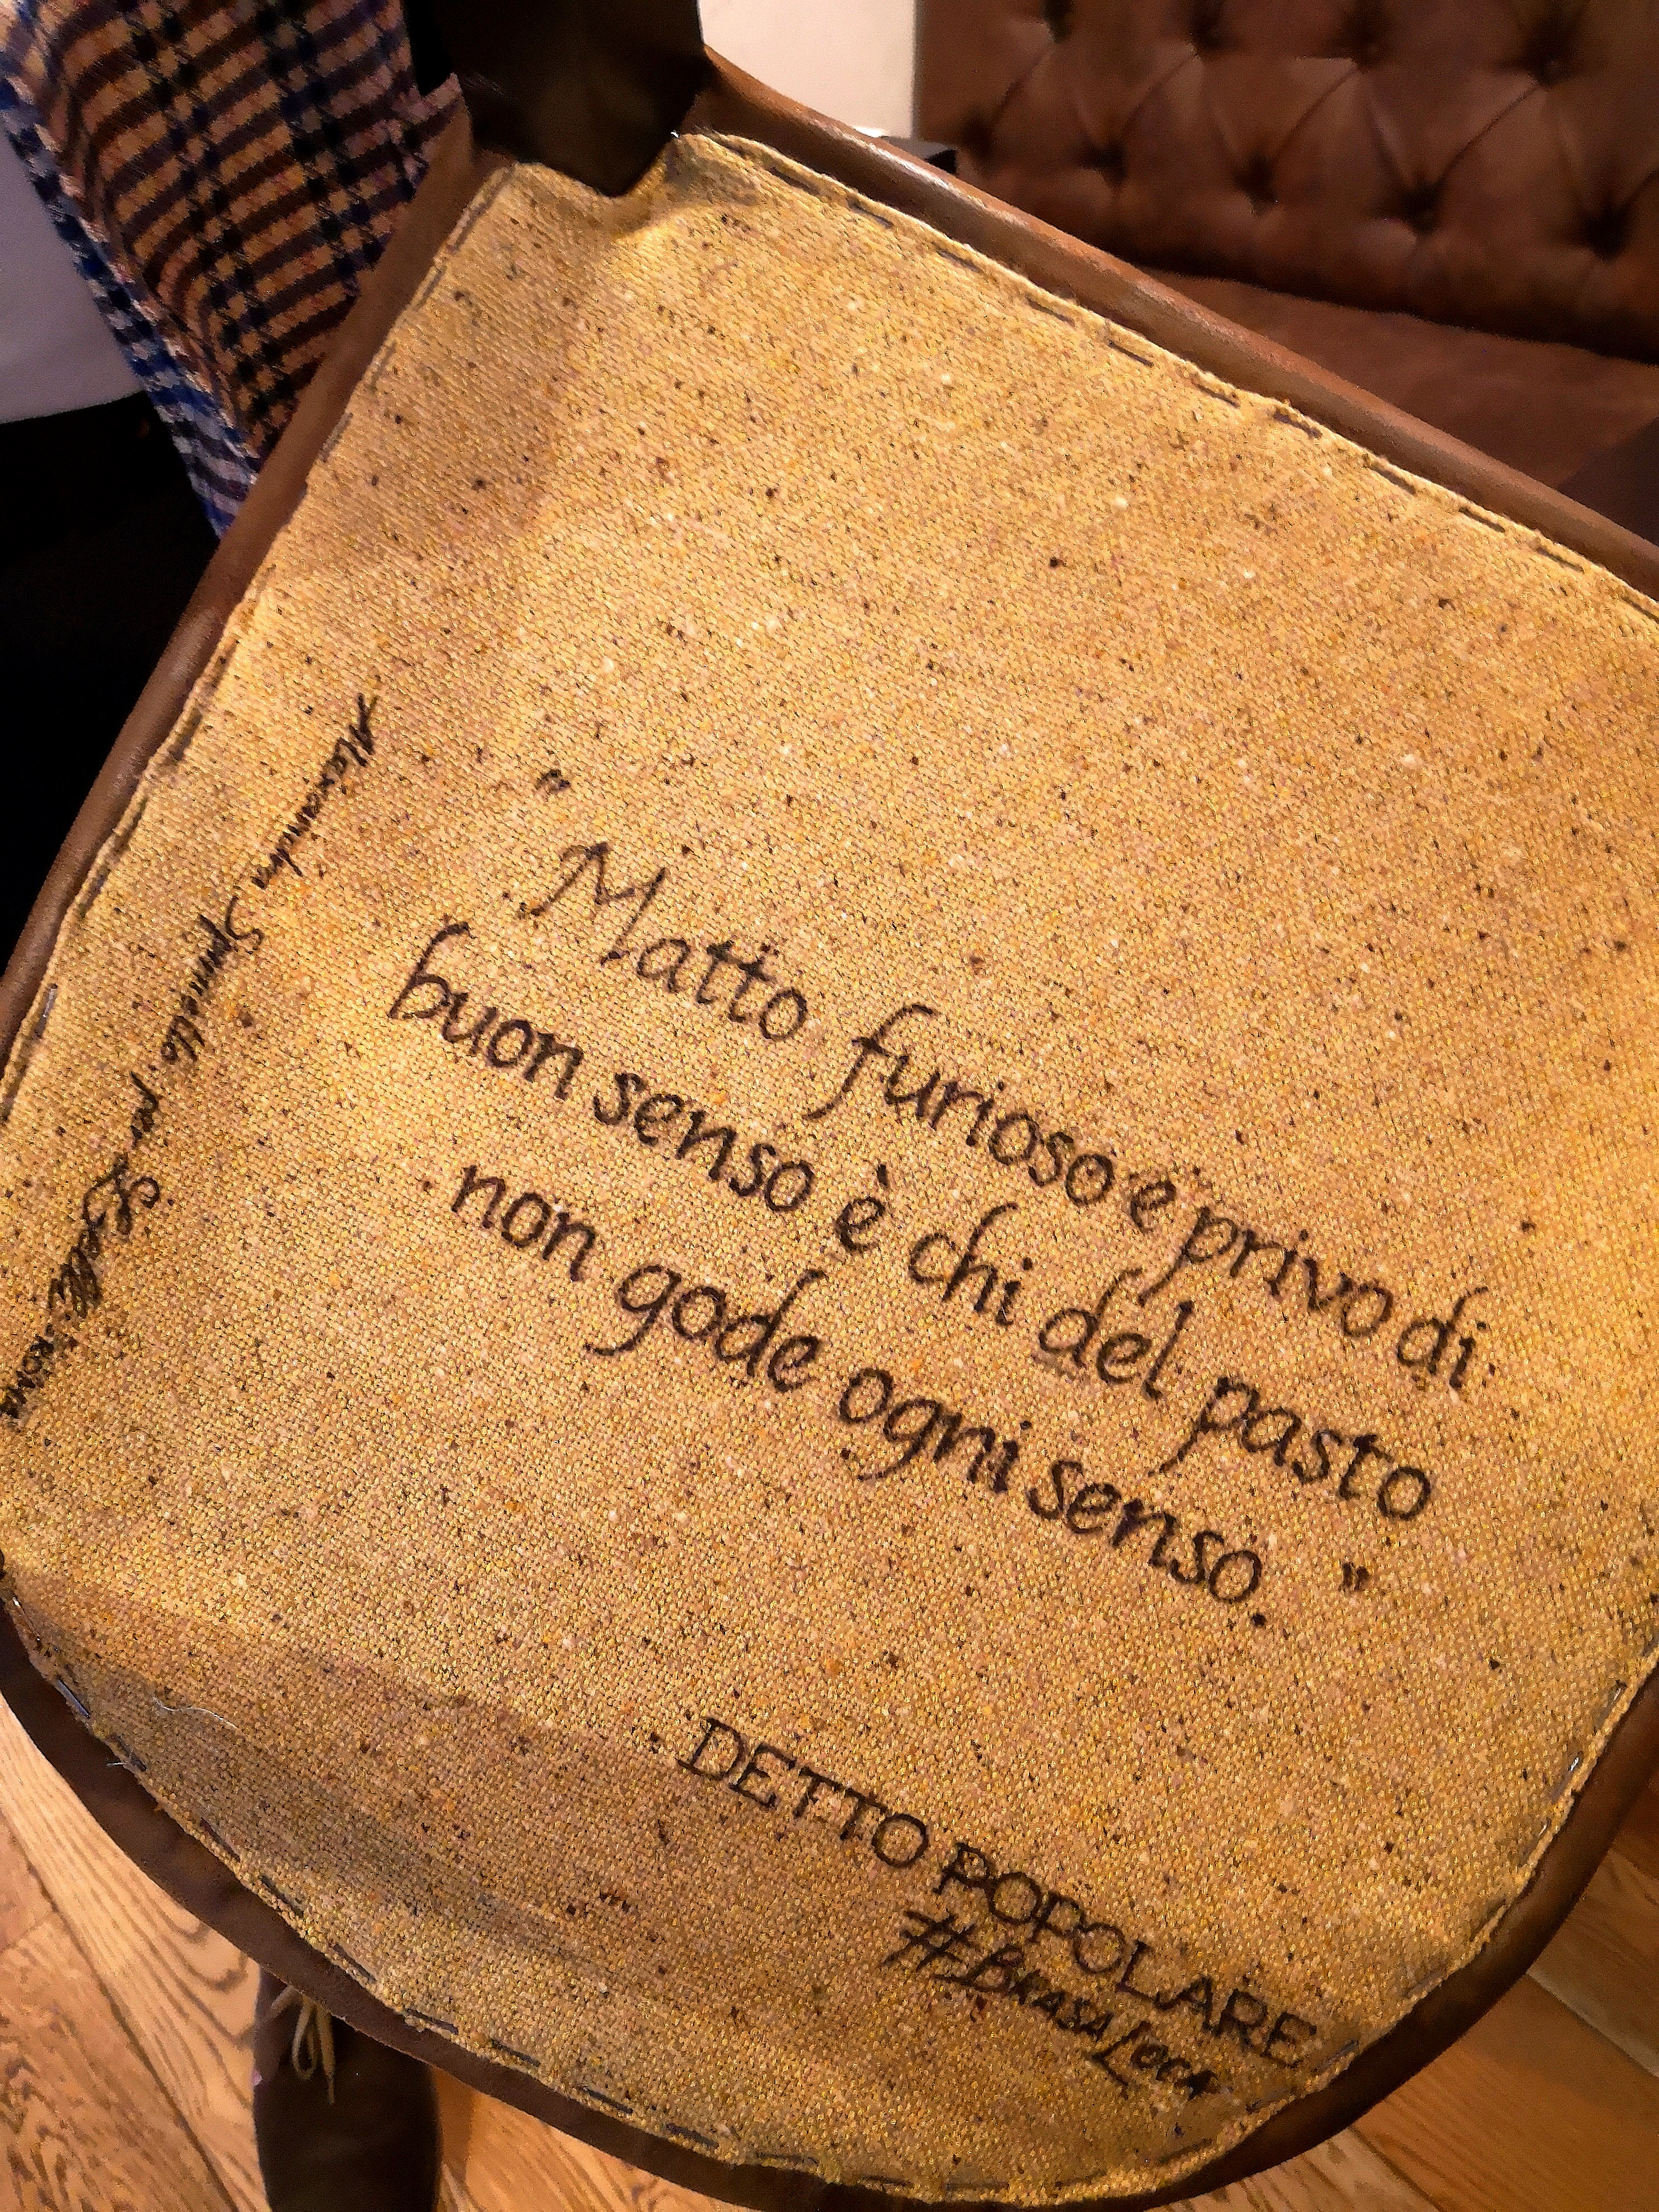 "Matto furioso e privo di
buon senso è chi del pasto
non gode ogni senso."
DETTO POPOLARE
#BRASALOCA
Alexandra per